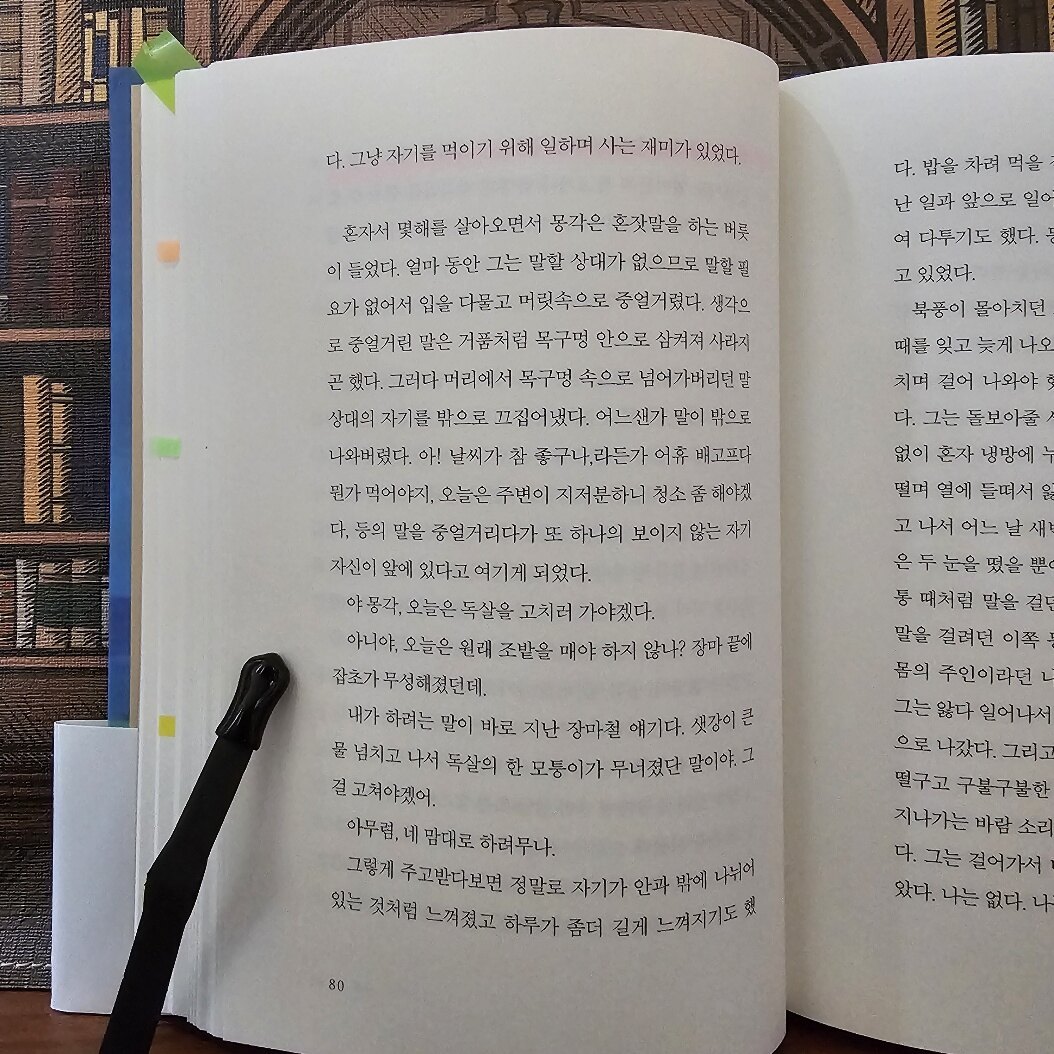 다. 그냥 자기를 먹이기 위해 일하며 사는 재미가 있었다.
혼자서 몇해를 살아오면서 몽각은 혼잣말을 하는 버릇
이 들었다. 얼마 동안 그는 말할 상대가 없으므로 말할 필
요가 없어서 입을 다물고 머릿속으로 중얼거렸다. 생각으
로 중얼거린 말은 거품처럼 목구멍 안으로 삼켜져 사라지
곤 했다. 그러다 머리에서 목구멍 속으로 넘어가버리던 말
상대의 자기를 밖으로 끄집어냈다. 어느샌가 말이 밖으로
나와버렸다. 아! 날씨가 참 좋구나,라든가 어휴 배고프다
뭔가 먹어야지, 오늘은 주변이 지저분하니 청소 좀 해야겠
다, 등의 말을 중얼거리다가 또 하나의 보이지 않는 자기
자신이 앞에 있다고 여기게 되었다.
야 몽각, 오늘은 독살을 고치러 가야겠다.
아니야, 오늘은 원래 조밭을 매야 하지 않나? 장마 끝에
잡초가 무성해졌던데.
내가 하려는 말이 바로 지난 장마철 얘기다. 샛강이 큰
물 넘치고 나서 독살의 한 모퉁이가 무너졌단 말이야. 그
걸 고쳐야겠어.
아무렴, 네 맘대로 하려무나.
그렇게 주고받다보면 정말로 자기가 안과 밖에 나뉘어
있는 것처럼 느껴졌고 하루가 좀더 길게 느껴지기도 했
80
다. 밥을 차려 먹을
난 일과 앞으로
여 다투기도 했다.
고 있었다.
북풍이 몰아치던
때를 잊고 늦게
치며 걸어 나와야
다. 그는 돌보아줄
없이 혼자 냉방에
떨며 열에 들떠서
고 나서 어느 날
은 두 눈을 떴을
통 때처럼 말을
말을 걸려던 이쪽
몸의 주인이라던
그는 앓다 일어나서
으로 나갔다. 그리고
떨구고 구불구불한
지나가는 바람 소리
다. 그는 걸어가서
았다. 나는 없다.